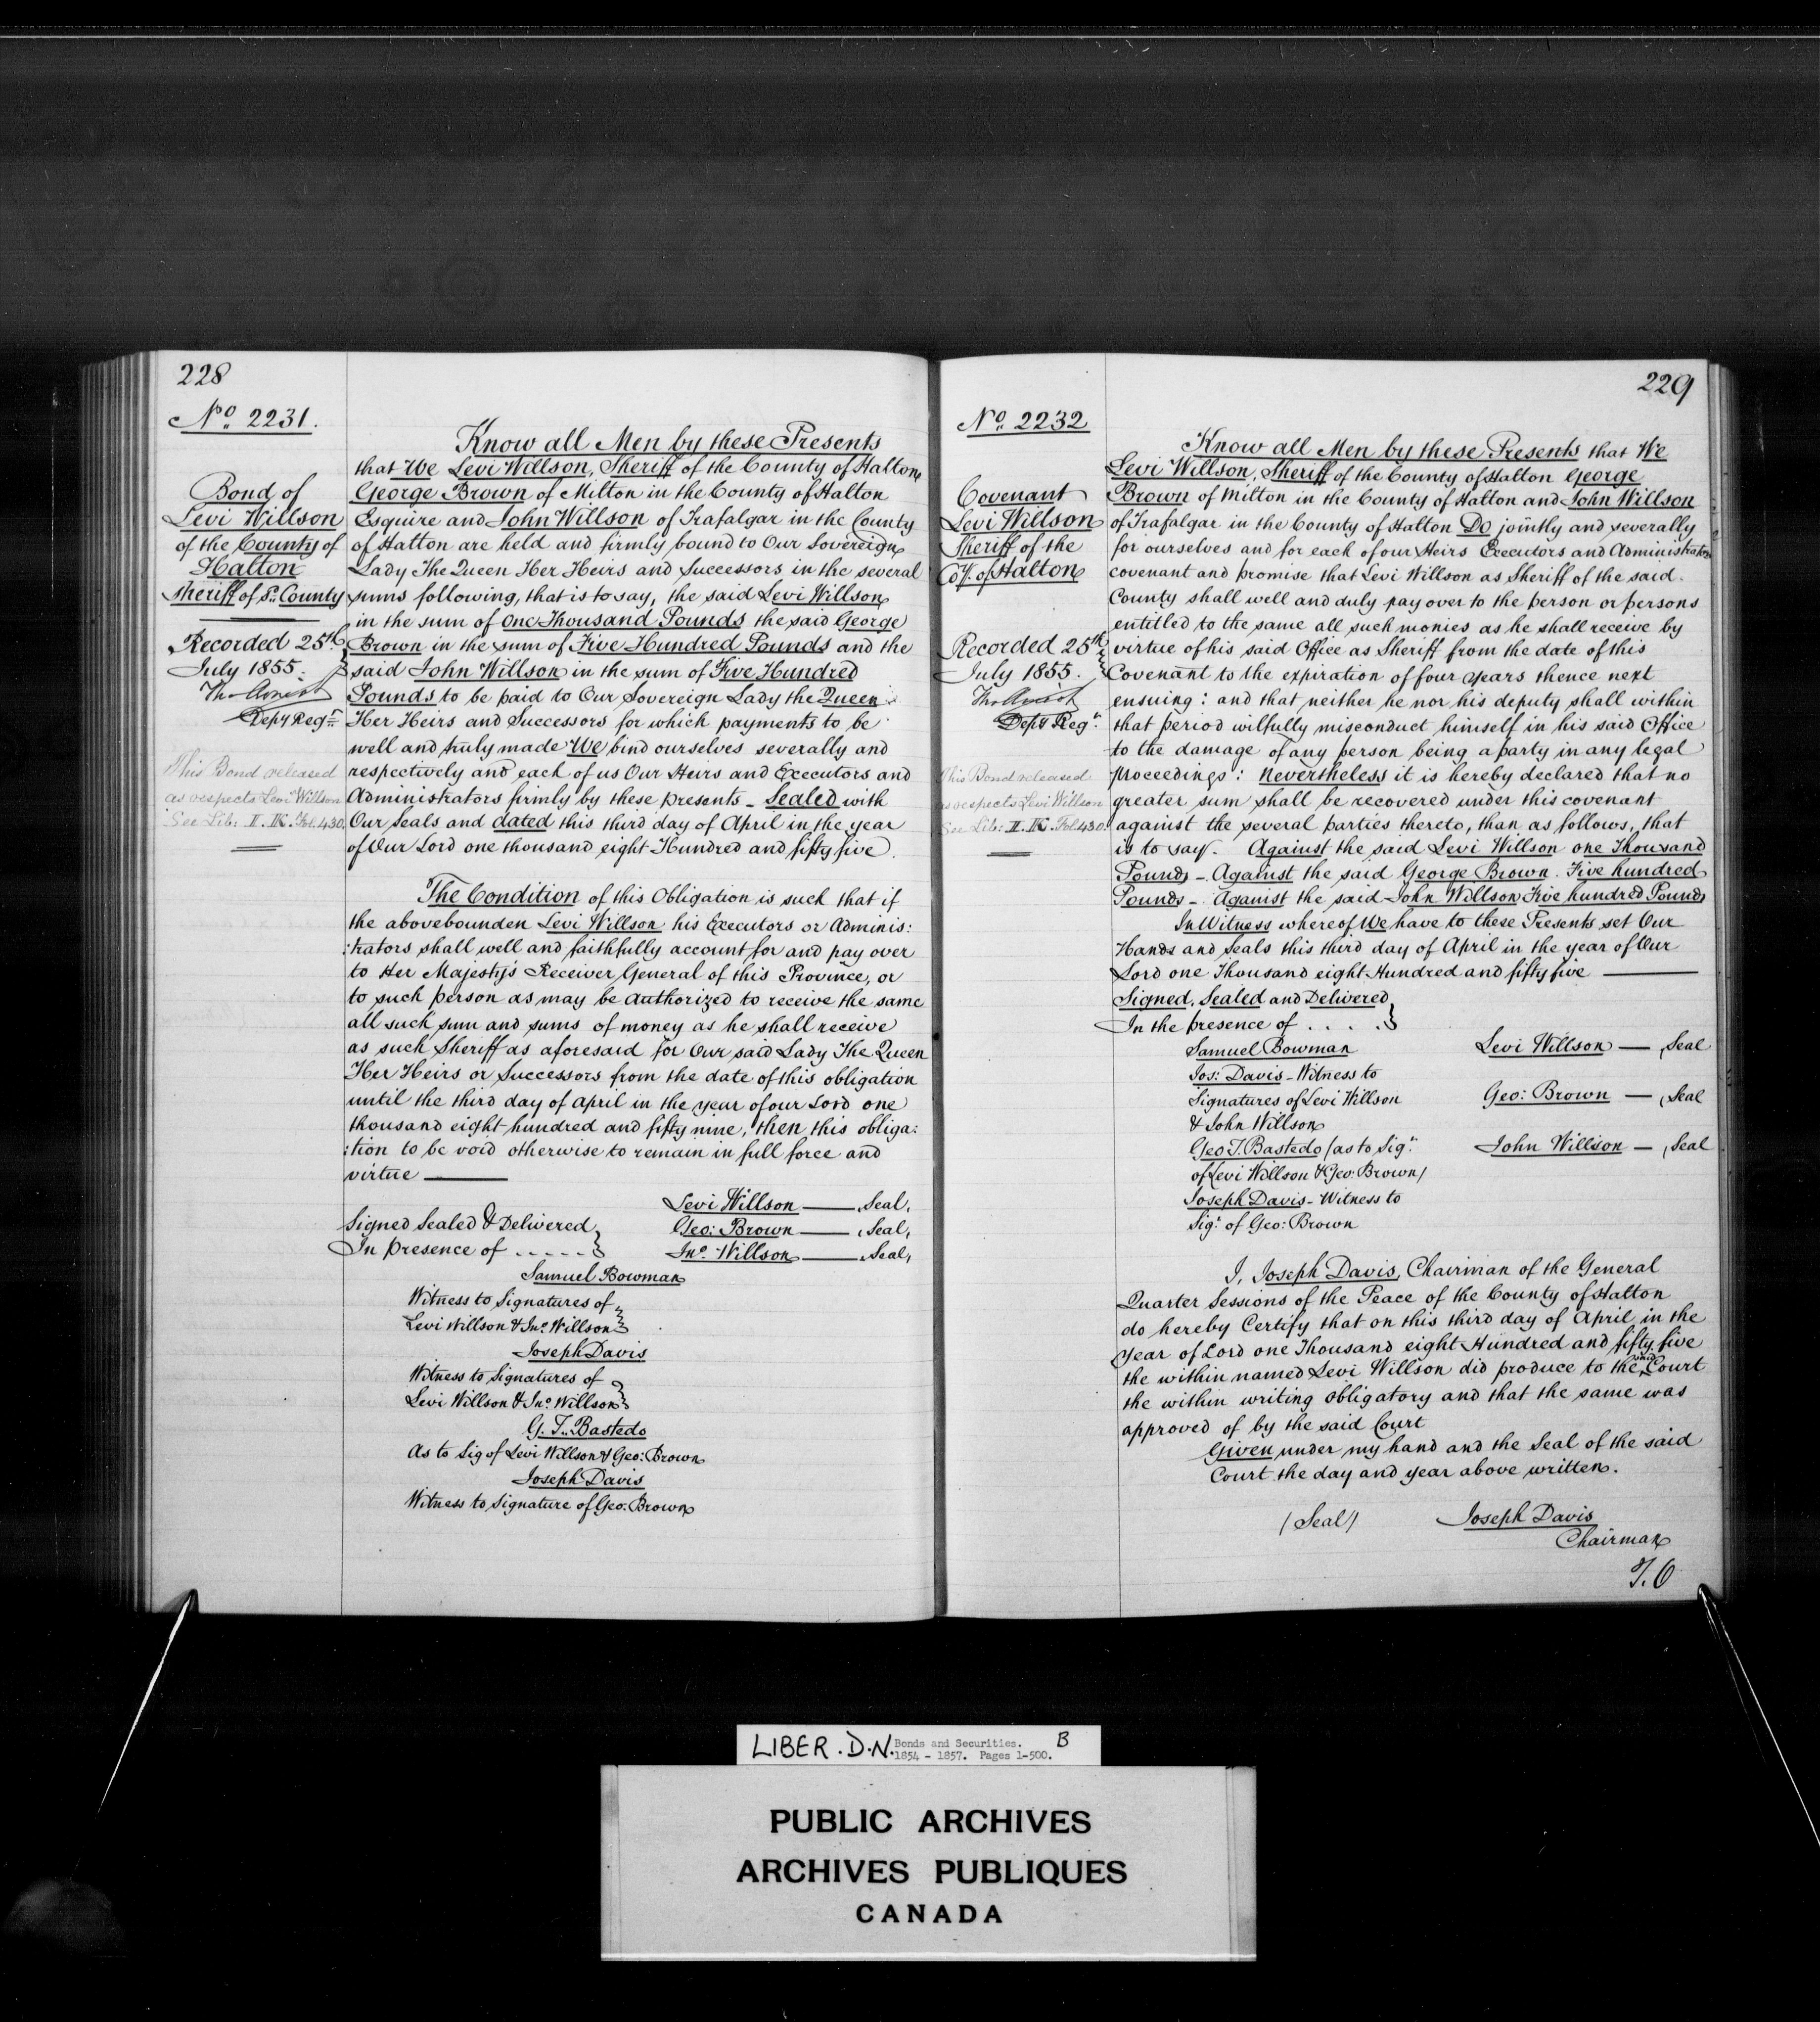 228
No. 2231.
Bond of
Levi Willson
of the County of
Halton
Sheriff of Sd. County
Recorded 25th
July 1855.
Depy Regr.
This Bond released
as respects Levi Willson
See Lib: II. IK. Fol. 430.
Know all Men by these Presents
that We Levi Willson, Sheriff of the County of Halton
George Brown of Milton in the County of Halton
Esquire and John Willson of Trafalgar in the County
of Halton are held and firmly bound to Our Sovereign
Lady The Queen Her Heirs and Successors in the several
sums following, that is to say, the said Levi Willson
in the sum of One Thousand Pounds the said George
Brown in the sum of Five Hundred Pounds and the
said John Willson in the sum of Five Hundred
Pounds to be paid to Our Sovereign Lady the Queen
Her Heirs and Successors for which payments to be
well and truly made We bind ourselves severally and
respectively and each of us Our Heirs and Executors and
Administrators firmly by these presents _ Sealed with
Our Seals and dated this third day of April in the year
of Our Lord one thousand eight Hundred and fifty five.
The Condition of this Obligation is such that if
the abovebounden Levi Willson his Executors or Adminis:
:trators shall well and faithfully account for and pay over
to Her Majesty's Receiver General of this Province, or
to such person as may be authorized to receive the same
all such sum and sums of money as he shall receive
as such Sheriff as aforesaid for Our said Lady The Queen
Her Heirs or Successors from the date of this obligation
until the third day of April in the year of our Lord one
thousand eight hundred and fifty nine, then this obliga:
:tion to be void otherwise to remain in full force and
virtue
Levi Willson — Seal,
Signed Sealed & Delivered
Geo: Brown — Seal,
In presence of . . . . .
Jno. Willson — Seal,
Samuel Bowman
Witness to Signatures of
Levi Willson & Jno. Willson
Joseph Davis
Witness to Signatures of
Levi Willson & Jno. Willson
G. T. Bastedo
As to Sig of Levi Willson & Geo: Brown
Joseph Davis
Witness to Signature of Geo: Brown
229
No. 2232
Covenant
Levi Willson
Sheriff of the
Coy. of Halton
Recorded 25th
July 1855.
Depy Regr.
This Bond released
as respects Levi Willson
See Lib: II. IK. Fol 430.
Know all Men by these Presents that We
Levi Willson, Sheriff of the County of Halton George
Brown of Milton in the County of Halton and John Willson
of Trafalgar in the County of Halton Do jointly and severally
for ourselves and for each of our Heirs Executors and Administrators
covenant and promise that Levi Willson as Sheriff of the said
County shall well and duly pay over to the person or persons
entitled to the same all such monies as he shall receive by
virtue of his said Office as Sheriff from the date of this
Covenant to the expiration of four years thence next
ensuing: and that neither he nor his deputy shall within
that period wilfully misconduct himself in his said Office
to the damage of any person being a party in any legal
Proceedings: Nevertheless it is hereby declared that no
greater sum shall be recovered under this covenant
against the several parties thereto, than as follows, that
is to say. Against the said Levi Willson one Thousand
Pounds _ Against the said George Brown. Five hundred
Pounds _ Against the said John Willson Five hundred Pounds
In Witness whereof We have to these Presents set Our
Hands and Seals this third day of April in the year of Our
Lord one Thousand eight Hundred and fifty five
Signed, Sealed and Delivered
In the presence of . . . .
Samuel Bowman
Levi Willson — Seal
Jos: Davis _ Witness to
Signatures of Levi Willson
Geo: Brown — Seal
& John Willson
Geo T. Bastedo (as to Sigr.
John Willson — Seal
of Levi Willson & Geo: Brown)
Joseph Davis _ Witness to
Sigr. of Geo: Brown
I, Joseph Davis, Chairman of the General
Quarter Sessions of the Peace of the County of Halton
do hereby Certify that on this third day of April in the
year of Lord one Thousand eight Hundred and fifty five
the within named Levi Willson did produce to the said Court
the within writing obligatory and that the same was
approved of by the said Court
Given under my hand and the Seal of the said
Court the day and year above written.
(Seal) Joseph Davis
Chairman
T.O
LIBER. D.N. Bonds and Securities. B
1854 - 1857. Pages 1-500.
PUBLIC ARCHIVES
ARCHIVES PUBLIQUES
CANADA